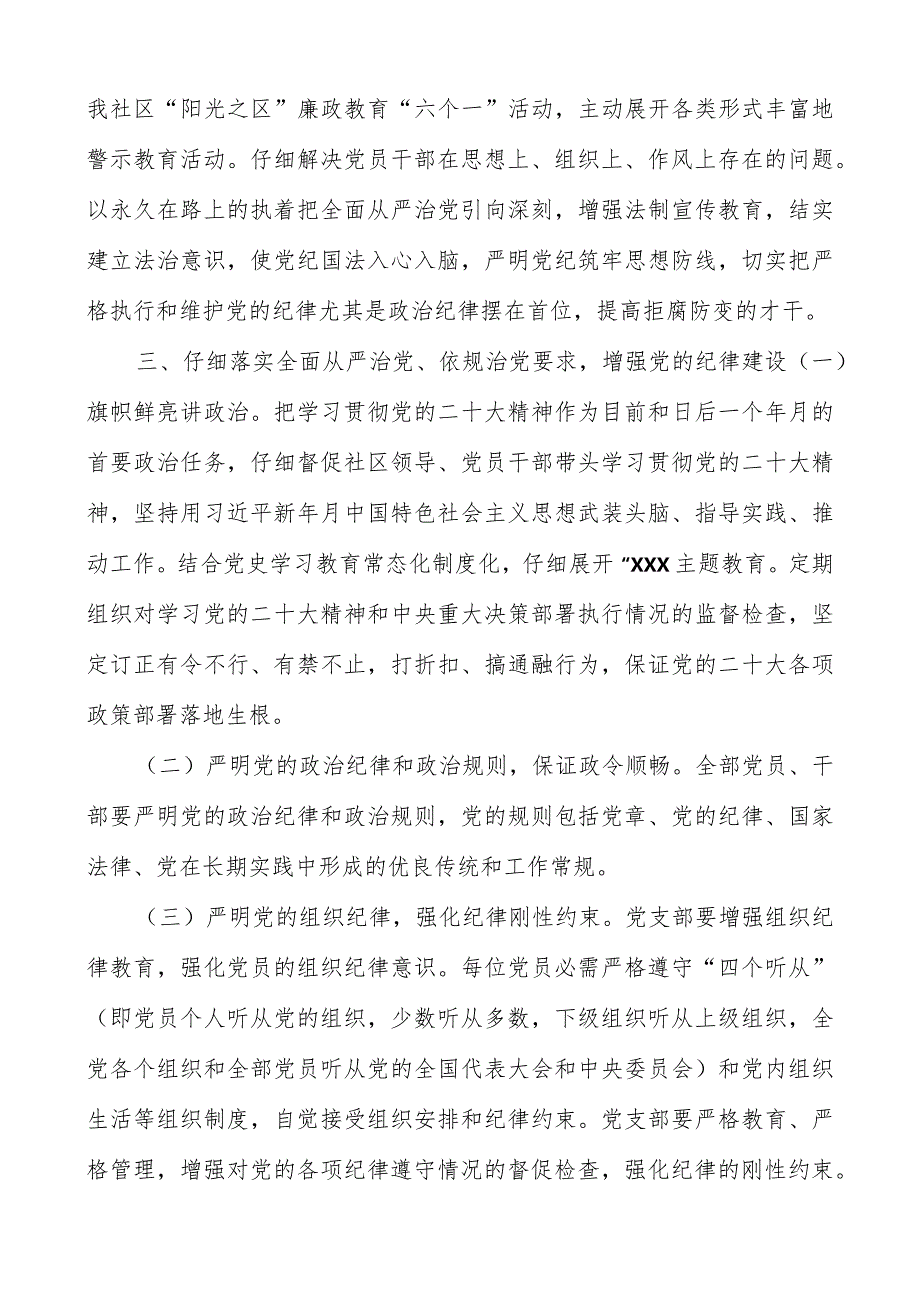 我社区“阳光之区”廉政教育“六个一”活动，主动展开各类形式丰富地
警示教育活动。仔细解决党员干部在思想上、组织上、作风上存在的问题。
以永久在路上的执着把全面从严治党引向深刻，增强法制宣传教育，结实
建立法治意识，使党纪国法入心入脑，严明党纪筑牢思想防线，切实把严
格执行和维护党的纪律尤其是政治纪律摆在首位，提高拒腐防变的才干。
三、仔细落实全面从严治党、依规治党要求，增强党的纪律建设（一）
旗帜鲜亮讲政治。把学习贯彻党的二十大精神作为目前和日后一个年月的
首要政治任务，仔细督促社区领导、党员干部带头学习贯彻党的二十大精
神，坚持用习近平新年月中国特色社会主义思想武装头脑、指导实践、推
动工作。结合党史学习教育常态化制度化，仔细展开“XXX 主题教育。定期
组织对学习党的二十大精神和中央重大决策部署执行情况的监督检查，坚
定订正有令不行、有禁不止，打折扣、搞通融行为，保证党的二十大各项
政策部署落地生根。
（二）严明党的政治纪律和政治规则，保证政令顺畅。全部党员、干
部要严明党的政治纪律和政治规则，党的规则包括党章、党的纪律、国家
法律、党在长期实践中形成的优良传统和工作常规。
（三）严明党的组织纪律，强化纪律刚性约束。党支部要增强组织纪
律教育，强化党员的组织纪律意识。每位党员必需严格遵守“四个听从”
（即党员个人听从党的组织，少数听从多数，下级组织听从上级组织，全
党各个组织和全部党员听从党的全国代表大会和中央委员会）和党内组织
生活等组织制度，自觉接受组织安排和纪律约束。党支部要严格教育、严
格管理，增强对党的各项纪律遵守情况的督促检查，强化纪律的刚性约束。